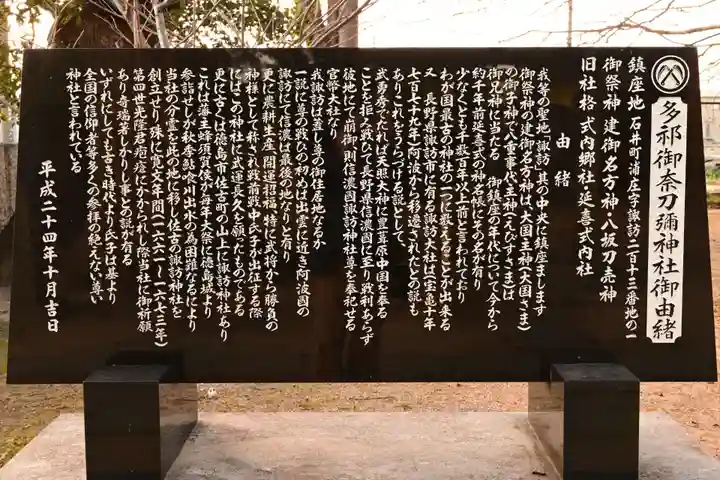 多祁御奈刀彌神社御由緒
鎮座地 石井町浦庄字諏訪二百十三番地の一
御祭神 建御名方神・八坂刀売神
旧社格 式内郷社・延喜式内社
由緒
我等の聖地「諏訪」其の中央に鎮座まします
御祭神の建御名方神は、大国主神(大国さま)
の御子神で八重事代主神(えびすさま)は
御兄神に当たる 御鎮座の年代について今から
約千年前延喜式の神名帳にその名が有り
少なくとも千数百年以上前と言われており
わが国最古の神社の一つに数えることが出来る
又 長野県諏訪市に有る諏訪大社は(宝亀十年
七百七十九年)阿波から移遷されたとの説も
ありこれをうらづける説として、
武勇秀でたれば天照大神に豊葦原中国を奉る
ことを拒みて戦ひて長野県信濃国に至り戦利あらず
彼地にて崩御、則信濃國諏訪神社尊を奉祀せる
官幣大社なり
我諏訪は蓋し尊の御住居地なるか
一説に尊の戦ひの初めは出雲に近き阿波國の
諏訪にて信濃は最後の地なりと有り
更に農耕生産、開運招福、特に武将から勝負の
神様として称され戦前戦中氏子が出征する際
にはこの神社に武運長久を願ったものである
更に古くは徳島市佐古町の山上に諏訪神社あり
これは藩主蜂須賀侯が毎年大祭に徳島城より
参詣せしが秋季鮎喰川出水の為困難なるにより
当社の分霊を此の地に移し佐古の諏訪神社を
創立せり、殊に寛文年間(一六六一~一六七三年)
第四世光隆君疱瘡にかかられし際当社に御祈願
あり奇瑞著しかりし事との説が有る
いずれにしても古き時代より氏子は基より
全国の信仰者等多くの参拝の絶えない尊い
神社と言われている
平成二十四年十月吉日